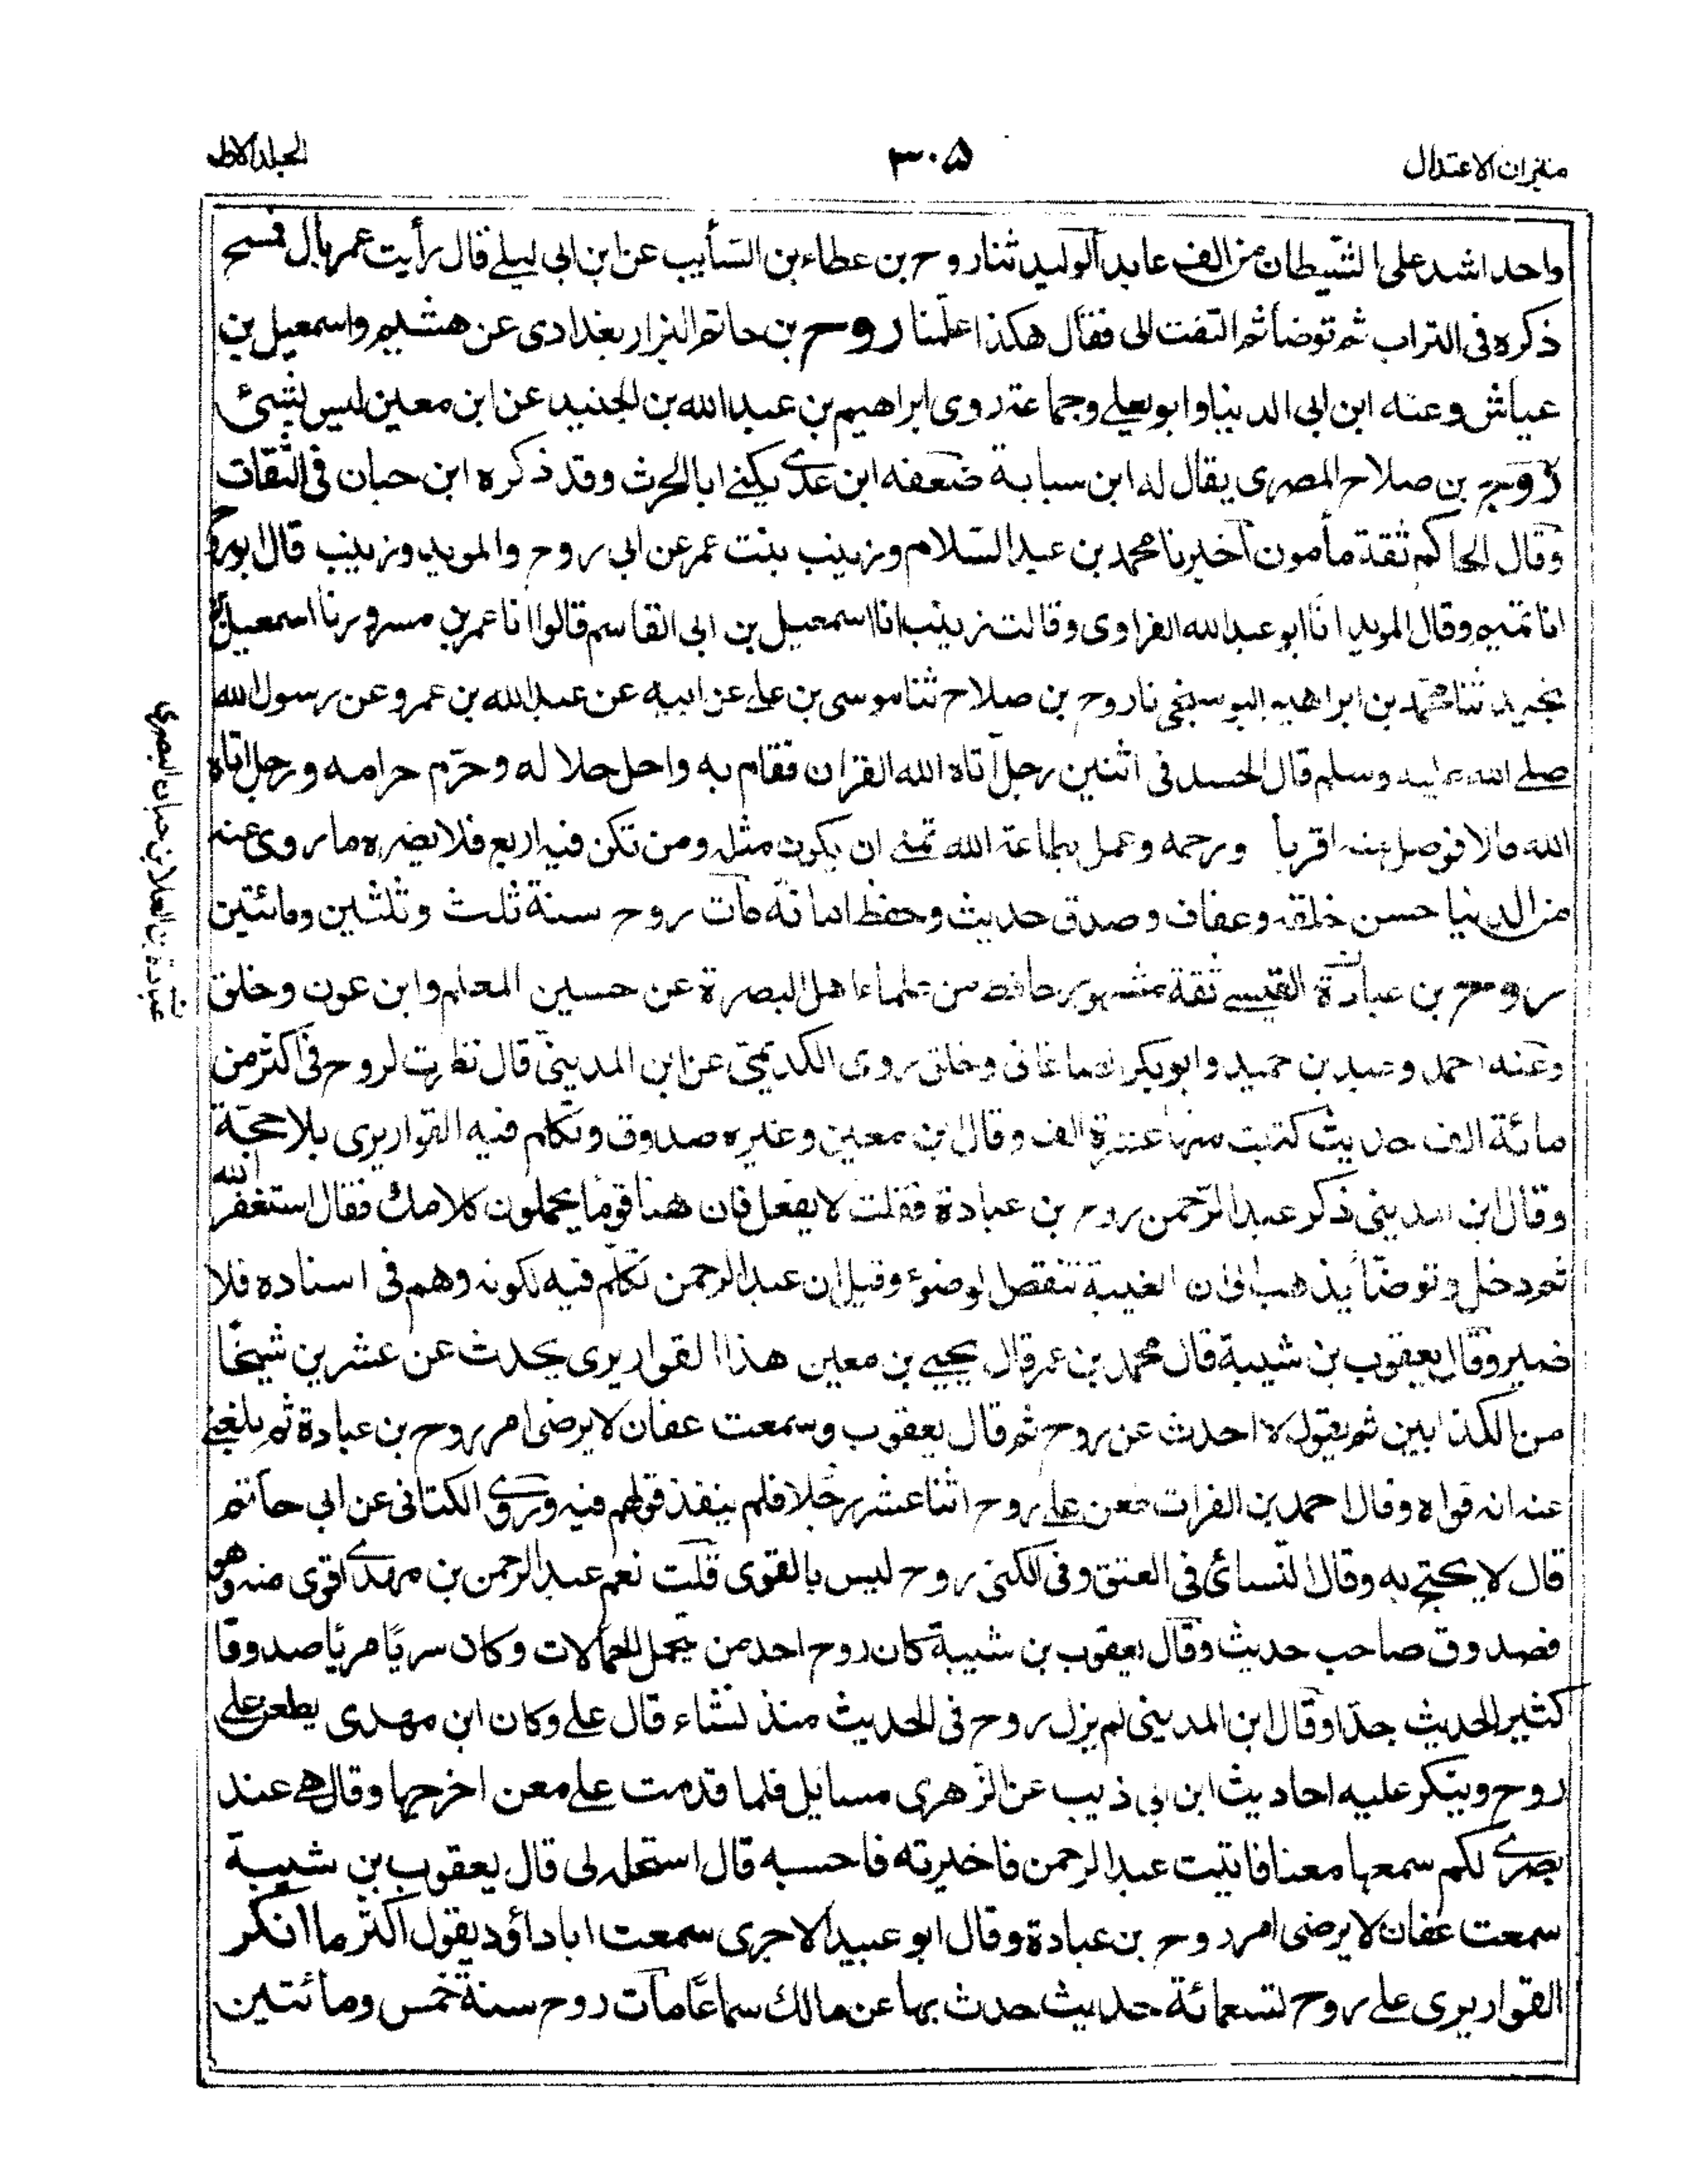 ميزان الاعتدال
٣٠٥
الجلد الاول
واحد اشد على الشيطان من الف عابد الوليد ثنا روح بن عطاء بن السأيب عن ابن ابى ليلے قال رأيت عمر بال فمسح
ذكره فى التراب ثم توضأ ثم التفت الى فقال هكذا علمنا روح بن حاتم البزار بغدادى عن هشيم واسمعيل بن
عياش وعنه ابن ابى الدنيا وابو يعلے وجماعة روى ابراهيم بن عبد الله بن الجنيد عن ابن معين ليس بشئ
روح بن صلاح المصرى يقال له ابن سيابة ضعفه ابن عدے يكنے ابا الحرث وقد ذكره ابن حبان فى الثقات
وقال الحاكم ثقة مأمون اخبرنا محمد بن عبد السلام وزينب بنت عمر عن ابى روح والمويد وزينب قال ابو روح
انا تميم وقال المويد انا ابو عبد الله الفراوى وقالت زينب انا اسمعيل بن ابى القاسم قالوا انا عمر بن مسرور نا اسمعيل بن
نجيد ثنا محمد بن ابراهيم البوسنجى نا روح بن صلاح ثنا موسى بن على عن ابيه عن عبد الله بن عمرو عن رسول الله
صلے الله عليه وسلم قال الحسد فى اثنين رجل آتاه الله القران فقام به واحل حلاله وحرّم حرامه ورجل اتاه
الله مالا فوصل منه اقربا ورحمه وعمل بطاعة الله تمنے ان يكون مثله ومن تكن فيه اربع فلا يضره ما روى عنه
من الدنيا حسن خلقه وعفاف وصدق حديث وحفظ امانة مات روح سنة ثلث وثلثين ومائتين
روح بن عبادة القيسے ثقة مشهور حافظ من علماء اهل البصرة عن حسين المعلم وابن عون وخلق
وعنه احمد وعبد بن حميد وابو بكر الصاغانى وخلق روى الكديمى عن ابن المدينى قال نظرت لروح فى اكثر من
مائة الف حديث كتبت منها عشرة الف وقال ابن معين وغيره صدوق وتكلم فيه القواريرى بلا حجة
وقال ابن المدينى ذكر عبد الرحمن روح بن عبادة فقلت لا يفعل فان هنا قوما يحملون كلامك فقال استغفر الله
ثم دخل وتوضأ يذهب ان الغيبة تنقض الوضوء وقيل ان عبد الرحمن تكلم فيه لكونه وهم فى اسناده فلا
ضير وقال يعقوب بن شيبة قال محمد بن عمر قال يحيے بن معين هذا القواريرى يحدث عن عشرين شيخا
من الكذابين ثم يقول لا احدث عن روح ثم قال يعقوب وسمعت عفان لا يرضى امر روح بن عبادة ثم بلغنے
عنه انه قواه وقال احمد بن الفرات طعن على روح اثنا عشر رجلا فلم ينفذ قولهم فيه وروى الكتانى عن ابى حاتم
قال لا يحتج به وقال النسائى فى العتق وفى الكنى روح ليس بالقوى قلت نعم عبد الرحمن بن مهدے اقوى منه وهو
فصدوق صاحب حديث وقال يعقوب بن شيبة كان روح احد من يتحمل الحمالات وكان سريا مريا صدوقا
كثير الحديث جدا وقال ابن المدينى لم يزل روح فى الحديث منذ نشاء قال على وكان ابن مهدى يطعن على
روح وينكر عليه احاديث ابن ابى ذيب عن الزهرى مسايل فلما قدمت على معن اخرجها وقال هے عند
بصرے لكم سمعها معنا فاتيت عبد الرحمن فاخبرته فاحسبه قال استحله لى قال يعقوب بن شيبة
سمعت عفان لا يرضى امر روح بن عبادة وقال ابو عبيد الاجرى سمعت ابا داؤد يقول اكثر ما انكر
القواريرى على روح تسعمائة حديث حدث بها عن مالك سماعا مات روح سنة خمس ومائتين
بن العلا بن حبان البصرى